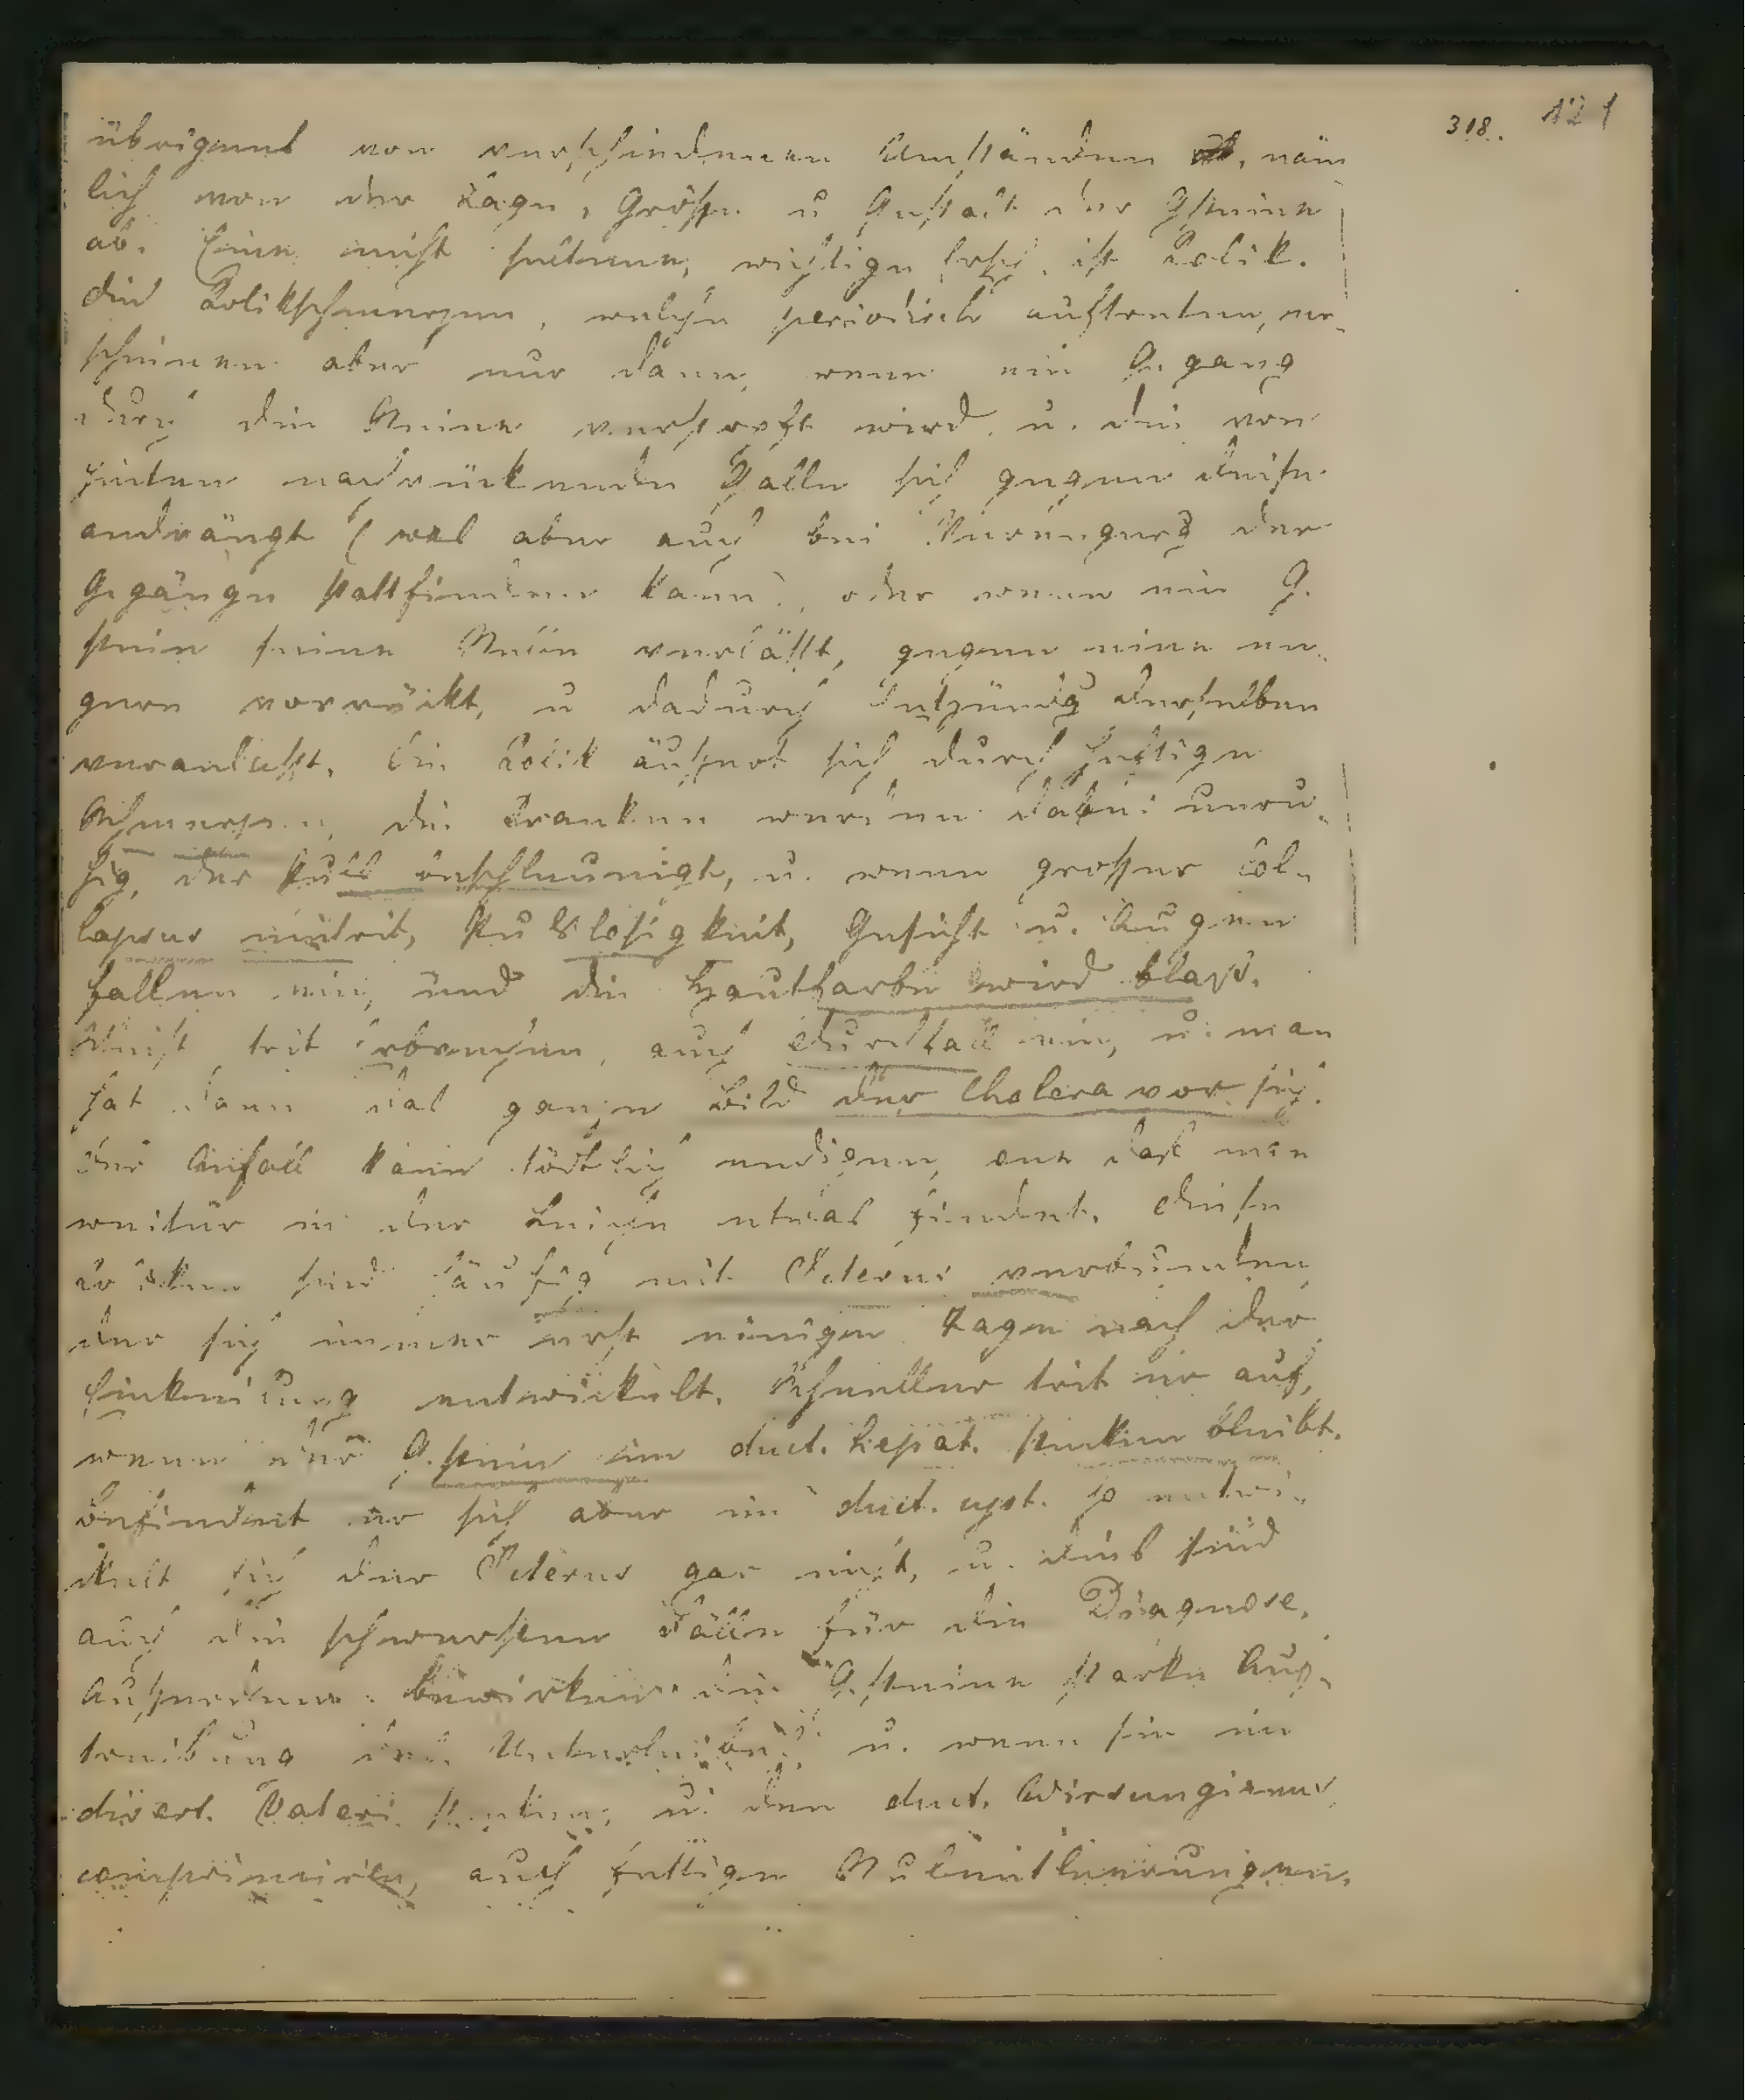 318. 121
übrigens von verschiedenen Umständen ab, näm
lich von der Lage, Größe u Gestalt der Gsteine
ab. Eine nicht seltene, wichtige Ersch. ist Kolik.
Die Kolikschmerzen, welche periodisch auftreten, er-
scheinen aber nur dann, wenn ein G. gang
durch die Steine verstopft wird, u. die von
hinten nachrückende Galle sich gegen diese
andrängt (was aber auch bei Verengerg der
G. gänge stattfinden kann), oder wenn ein G.
stein seine Stelle verläßt, gegen eine en-
gere vorrückt, u dadurch Entzündg derselben
veranlaßt. Die Kolik äußert sich durch heftige
Schmerzen, die Kranken werden dabei unru-
hig, der Puls beschleunigt, u. wenn grosser Col-
lapsus eintrit, Pulslosigkeit, Gesicht u. Augen
fallen ein, und die Hautfarbe wird blass.
Meist trit Erbrechen, auch Durchfall ein, u. man
hat dann das ganze Bild der Cholera vor sich.
Der Anfall kann tödtlich endigen, one daß man
weiter in der Leiche etwas findet. Diese
Koliken sind häufig mit Icterus verbunden,
der sich immer erst einige Tage nach der
Einkeilung entwickelt. Schneller trit er auf,
wenn der G. stein im duct. hepat. stecken bleibt.
Befindet er sich aber im duct. cyst. so entwi-
kelt sich der Icterus gar nicht, u. dies sind
auch die schwersten Fälle für die Diagnose.
Außerdem bewirken die G. steine starke Auf-
treibung des Unterleibes, u. wenn sie im
divert. Vateri stecken, u. den duct. Wirsungianus
comprimiren, auch fettige Stulentleerungen.